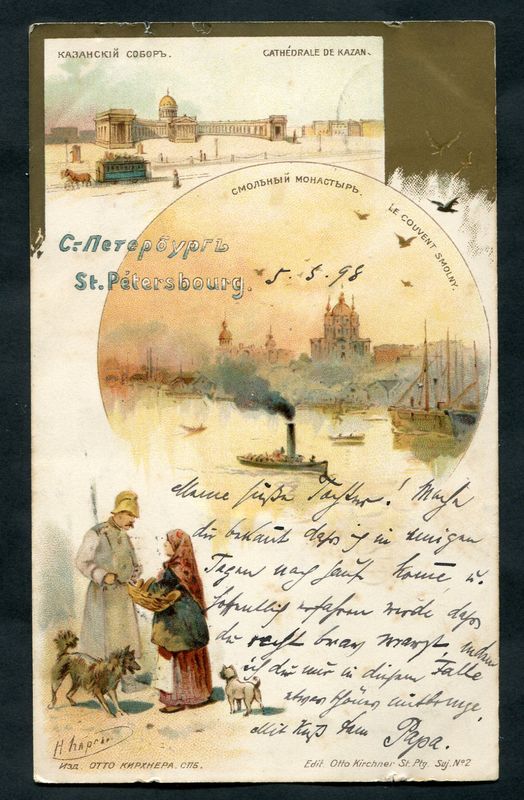 КАЗАНСКІЙ СОБОРЪ.
CATHÉDRALE DE KAZAN.
СМОЛЬНЫЙ МОНАСТЫРЬ.
LE COUVENT SMOLNY.
С.-Петербургъ
St. Pétersbourg.
5. 5. 98
Meine süße Tochter! Mache
dir bekant daß ich in einigen
Tagen nach Hause kome u.
hoffentlich erfahren werde daß
du recht brav warst,
ich dir nur in diesem Falle
etwas schönes mitbringe.
Mit Kuß Dein Papa.
Изд. ОТТО КИРХНЕРА. СПБ.
Edit. Otto Kirchner St. Ptg. Suj. №2